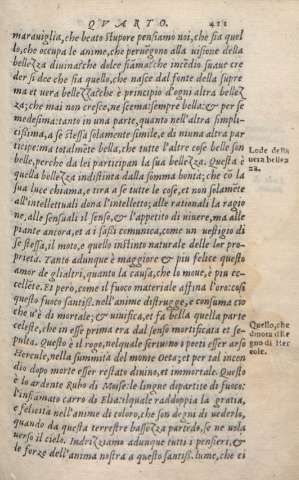 QVARTO. 421
marauiglia, che beato stupore pensiamo noi, che sia quel
lo, che occupa le anime, che peruẽgono alla uisione della
bellezza diuina? che dolce fiãma? che incẽdio suaue cre
der si dee che sia quello, che nasce dal fonte della supre
ma et uera bellezza? che è principio d'ogni altra bellez
za; che mai non cresce, ne scema: sempre bella: & per se
medesima: tanto in una parte, quanto nell'altra simpli-
cissima, a se stessa solamente simile, e di niuna altra par
ticipe: ma talmẽte bella, che tutte l'altre cose belle son
belle, perche da lei participan la sua bellezza. Questa è
quella bellezza indistinta dalla somma bontà; che cõ la
sua luce chiama, e tira a se tutte le cose, et non solamẽte
all'intellettuali dona l'intelletto; alle rationali la ragio
ne, alle sensuali il senso, & l'appetito di uiuere, ma alle
piante ancora, et a i sassi comunica, come un uestigio di
se stessa, il moto, e quello instinto naturale delle lor pro-
prietà. Tanto adunque è maggiore & piu felice questo
amor de gli altri, quanto la causa, che lo moue, è piu ec-
cellẽte. Et però, come il fuoco materiale affina l'oro: cosi
questo fuoco santiss. nell'anime distrugge, e consuma cio
che u'è di mortale; & uiuifica, et fa bella quella parte
celeste, che in esse prima era dal senso mortificata et se-
pulta. Questo è il rogo, nel quale scriuono i poeti esser arso
Hercule, nella summità del monte Oeta; et per tal incen
dio dopo morte esser restato diuino, et immortale. Questo
è lo ardente Rubo di Mose: le lingue dipartite di fuoco:
l'infiãmato carro di Elia: ilquale raddoppia la gratia,
e felicità nell'anime di coloro, che son degni di uederlo,
quando da questa terrestre bassezza partẽdo, se ne uola
uerso il cielo. Indrizziamo adunque tutti i pensieri, &
le forze dell'anima nostra a questo santiss. lume, che ci
Lode della
uera bellez
za.
Quello, che
dinota il Ro
go di Her
cole.